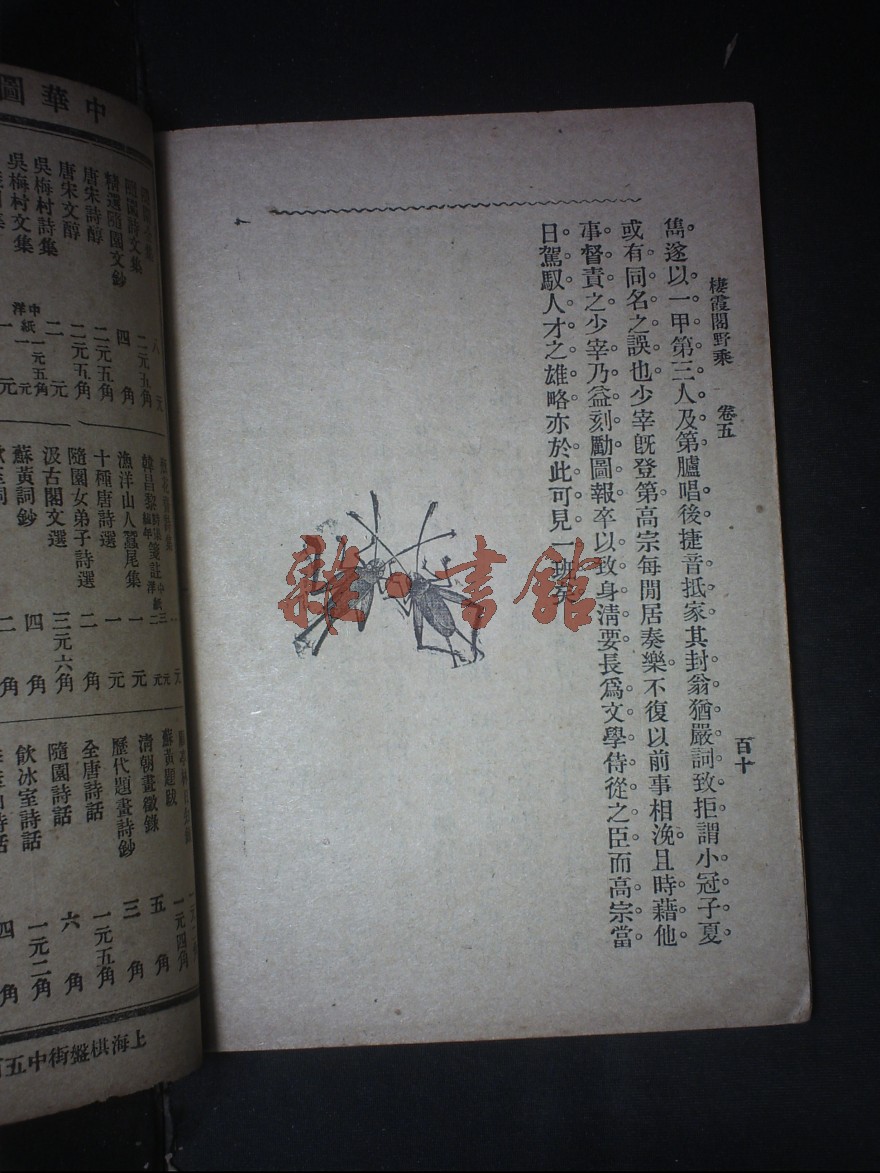 棲霞閣野乘 卷五 百十
雋。遂以一甲第三人及第。臚唱後捷音抵家其封翁猶嚴詞致拒謂小冠子夏。
或有同名之誤也。少宰旣登第。高宗每閒居奏樂不復以前事相浼。且時藉他
事督責之。少宰乃益刻勵圖報。卒以致身淸要。長爲文學侍從之臣。而高宗當
日駕馭人才之雄略。亦於此可見一班矣
雜·書館
中華圖
隨園詩文集 二元五角
精選隨園文鈔 四角
唐宋詩醇 二元五角
唐宋文醇 二元五角
吳梅村詩集 二元
吳梅村文集
韓昌黎
漁洋山人蠶尾集 一元
十種唐詩選 一元
隨園女弟子詩選 二角
汲古閣文選 三元六角
蘇黃詞鈔 四角
二角
蘇黃題跋
淸朝畫徵錄 五角
歷代題畫詩鈔 三角
全唐詩話 一元五角
隨園詩話 六角
飲冰室詩話 一元二角
四角
上海棋盤街中五